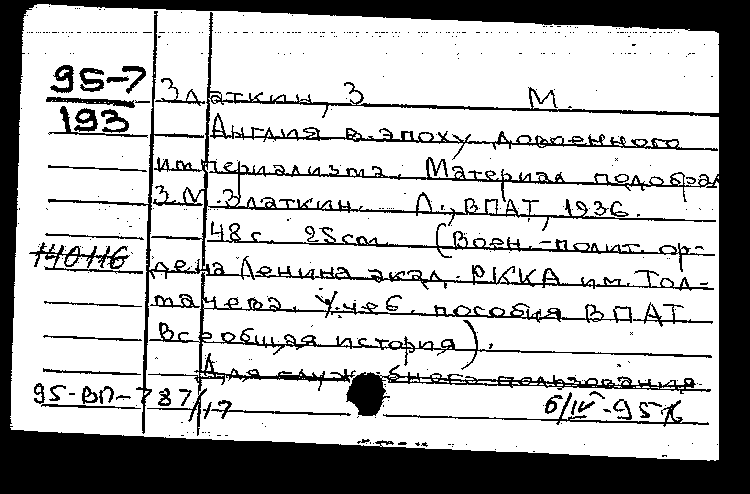 95-7
193
Златкин, З М.
Англия в эпоху довоенного
империализма. Материал подобрал
З.М.Златкин. Л., ВПАТ, 1936.
48 с. 25см. (Воен.-полит. ор-
140116
дена Ленина акад. РККА им. Тол-
мачева. Учеб. пособия ВПАТ
Всеобщая история).
Для служебного пользования
95-ВП-787/17
6/IV-95